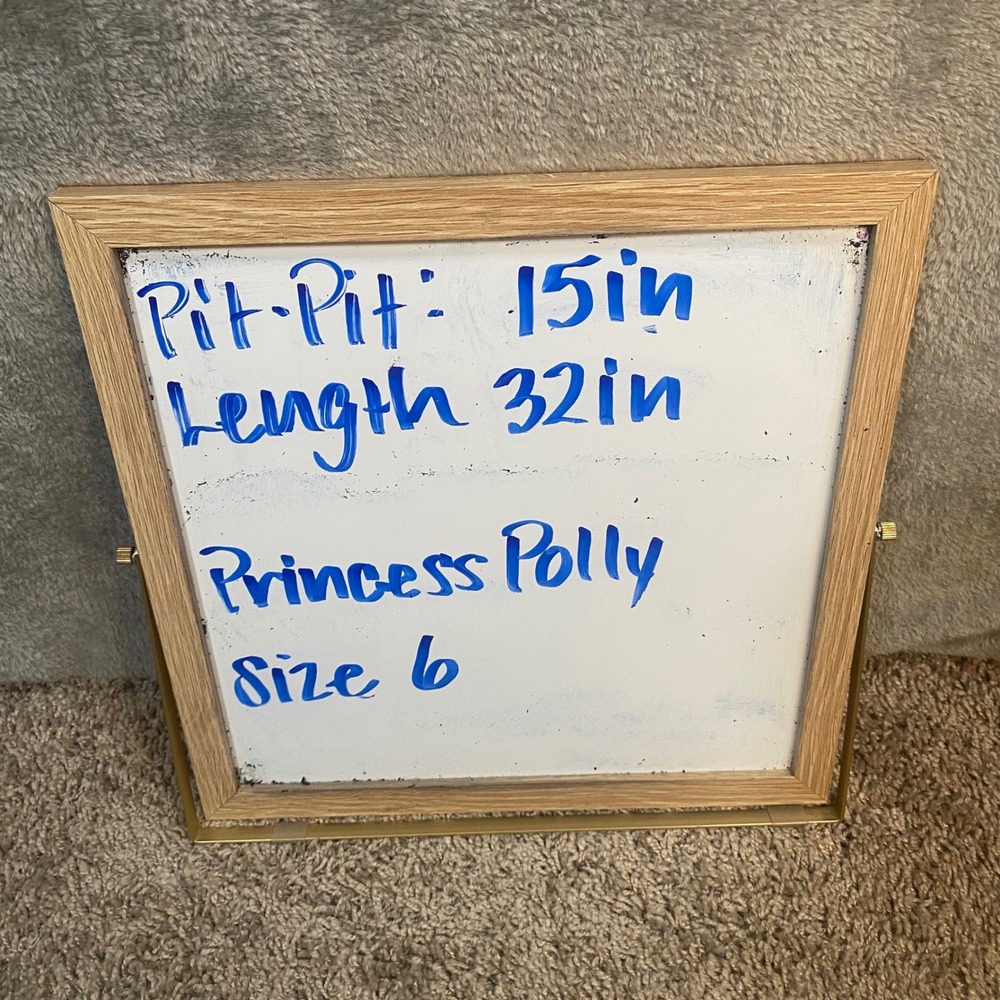 Pit-Pit: 15in
Length 32in
Princess Polly
Size 6